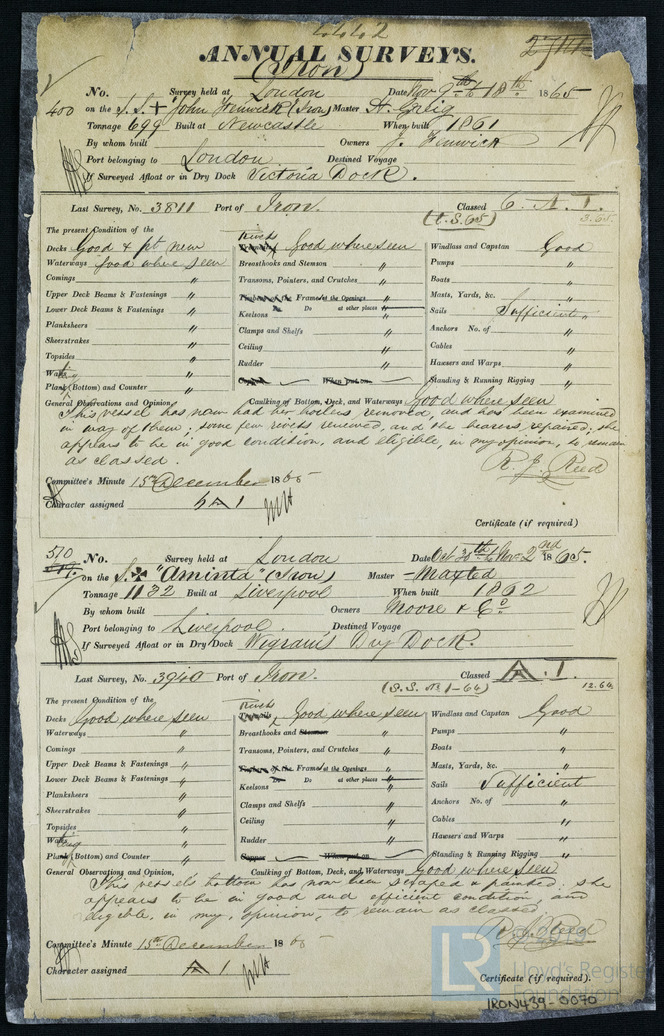 4442
ANNUAL SURVEYS.
(Iron)
No. Survey held at London Date Nov 9th to 18th 1865
400 on the S.S. "John Fenwick" (Iron) Master A. Greig
Tonnage 699 Built at Newcastle When built 1861
By whom built Owners J. Fenwick
Port belonging to London Destined Voyage
If Surveyed Afloat or in Dry Dock Victoria Dock.
Last Survey, No. 3811 Port of Iron. Classed 6 A 1.
(S.S. 65) 3.65
The present Condition of the
Decks Good & pt new
Waterways good where seen
Comings "
Upper Deck Beams & Fastenings "
Lower Deck Beams & Fastenings "
Planksheers "
Sheerstrakes "
Topsides "
Plating (Bottom) and Counter "
Rivets Good where seen
Breasthooks and Stemson "
Transoms, Pointers, and Crutches "
Frames at the Openings "
Do Do at other places "
Keelsons "
Clamps and Shelfs "
Ceiling "
Rudder "
Copper When put on
Windlass and Capstan Good
Pumps "
Boats "
Masts, Yards, &c. "
Sails Sufficient
Anchors No. of "
Cables "
Hawsers and Warps "
Standing & Running Rigging "
General Observations and Opinion, Caulking of Bottom, Deck, and Waterways Good where seen
This vessel has now had her boilers removed, and has been examined
in way of them; some few rivets renewed, and the bearers repaired, she
appears to be in good condition, and eligible, in my opinion, to remain
as classed.
R. J. Reed
Committee's Minute 15th December 1865
Character assigned 6 A 1
Certificate (if required)
510
No. Survey held at London Date Oct 30th to Nov 2nd 1865.
on the S. "Aminta" (Iron) Master Maxted
Tonnage 1132 Built at Liverpool When built 1862
By whom built Owners Moore & Co
Port belonging to Liverpool. Destined Voyage
If Surveyed Afloat or in Dry Dock Wigram's Dry Dock.
Last Survey, No. 3940 Port of Iron. Classed A. 1
(S.S. No 1-64) 12.64
The present Condition of the
Decks Good where seen
Waterways "
Comings "
Upper Deck Beams & Fastenings "
Lower Deck Beams & Fastenings "
Planksheers "
Sheerstrakes "
Topsides "
Plating (Bottom) and Counter "
Rivets Good where seen
Breasthooks and Stemson "
Transoms, Pointers, and Crutches "
Frames at the Openings "
Do Do at other places "
Keelsons "
Clamps and Shelfs "
Ceiling "
Rudder "
Copper When put on
Windlass and Capstan Good
Pumps "
Boats "
Masts, Yards, &c. "
Sails Sufficient
Anchors No. of "
Cables "
Hawsers and Warps "
Standing & Running Rigging "
General Observations and Opinion, Caulking of Bottom, Deck, and Waterways Good where seen
This vessel's bottom has now been scraped & painted: she
appears to be in good and efficient condition and
eligible, in my, opinion, to remain as classed
R. J. Reed
Committee's Minute 15th December 1865
Character assigned A 1
Certificate (if required).
LR Lloyd's Register
Foundation
IRON439-0070